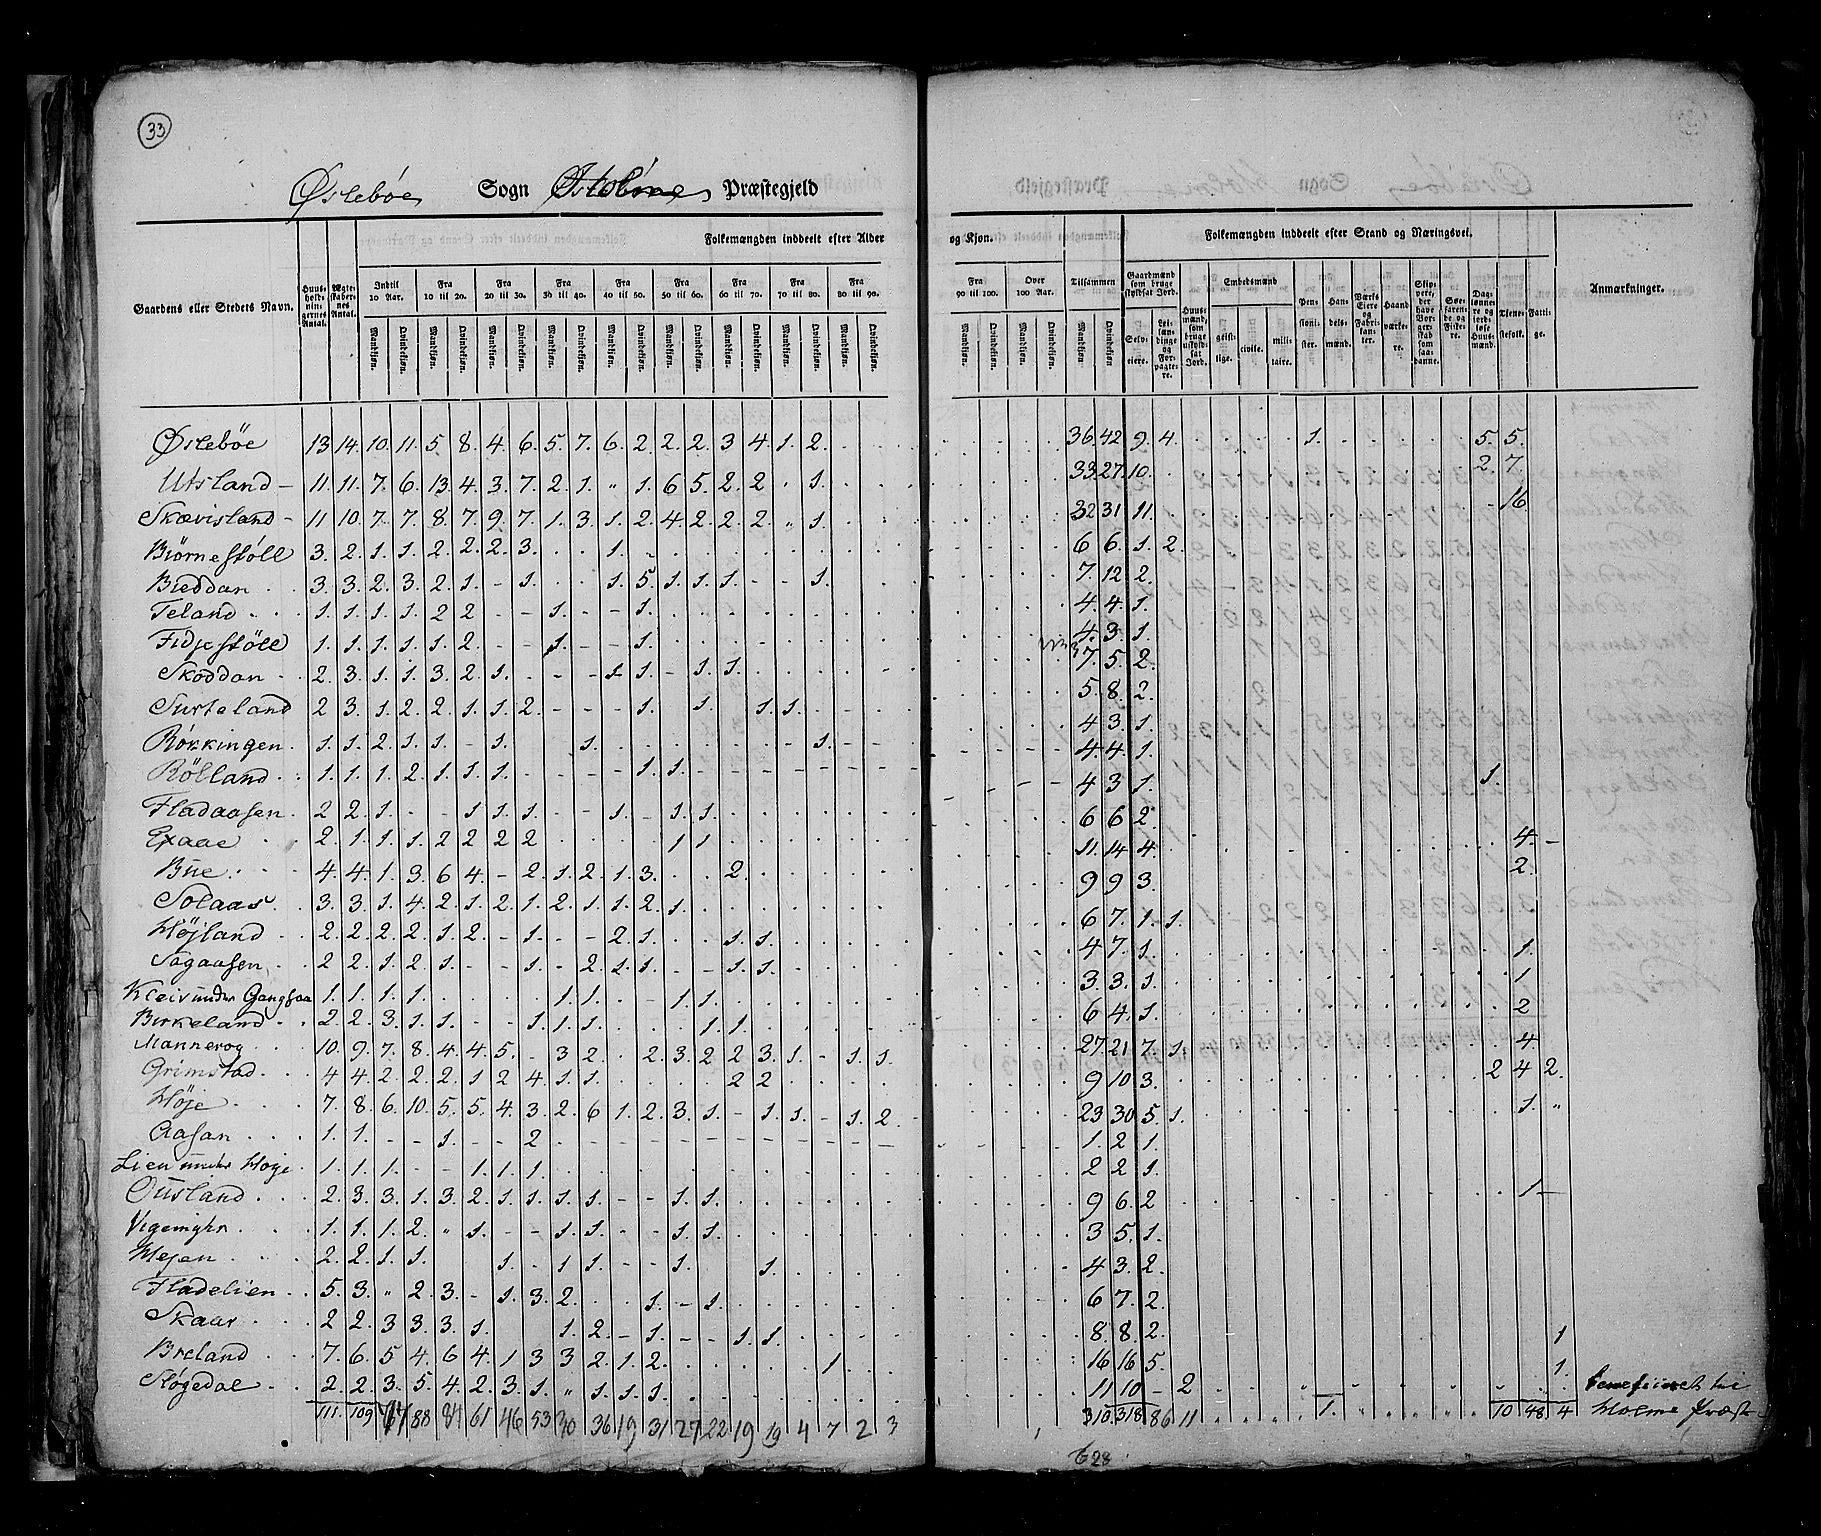 33
Øslebøe Sogn Præstegjeld
Gaardens eller Stedets Navn. Huusholdningernes Antal. Ægteskabernes Antal. Folkemængden inddeelt efter Alder og Kjøn. Folkemængden inddeelt efter Stand og Næringsvei. Anmærkninger.
Indtil 10 Aar. Fra 10 til 20. Fra 20 til 30. Fra 30 til 40. Fra 40 til 50. Fra 50 til 60. Fra 60 til 70. Fra 70 til 80. Fra 80 til 90. Fra 90 til 100. Over 100 Aar. Tilsammen
Mandkjøn. Qvindekjøn.
Gaardmænd som bruge skyldsat Jord. Selveiere. Leilændinge og Forpagtere. Huusmænd, som bruge uskyldsat Jord. Embedsmænd geistlige. civile. militaire. Pensionister. Handelsmænd. Værks Eiere og Fabrikanter. Haandværkere. Skippere, der have Borgerskab som saadanne. Søefarende og Fiskere. Dagslønnere og jordløse Huusmænd. Tjenestefolk. Fattige.
Øslebøe 13 14 10 11 5 8 4 6 5 7 6 2 2 2 3 4 1 2 36 42 9 4 1 5 5
Utsland 11 11 7 6 13 4 3 7 2 1 " 1 6 5 2 2 " 1 33 27 10 2 7
Skævisland 11 10 7 7 8 7 9 7 1 3 1 2 4 2 2 2 " 1 32 31 11 - 16
Biørnestøll 3 2 1 1 2 2 2 3 1 6 6 1 2
Bieddan 3 3 2 3 2 1 - 1 1 5 1 1 1 - - 1 7 12 2
Teland 1 1 1 1 2 2 - - 1 - - 1 4 4 1
Fidjestøll 1 1 1 1 1 2 - - 1 - - 1 4 3 1
Skoddan 2 3 1 1 3 2 1 - - - 1 1 - 1 1 7 5 2
Surteland 2 3 1 2 2 1 1 2 - - - 1 1 1 1 5 8 2
Røkkingen 1 1 2 1 1 - 1 1 1 4 3 1
Rølland 1 1 1 2 1 1 1 - - - - 1 1 4 4 1
Fladaasen 2 2 1 - - 1 1 1 - - 1 - 1 1 4 3 1 1
Exaae 2 1 1 1 2 2 2 2 1 1 6 6 2
Bue 4 4 1 3 6 4 - 2 1 2 1 3 2 11 14 4 4
Solaas 3 3 1 4 2 1 2 1 2 1 1 2 1 9 9 3 2
Højland 2 2 2 2 1 2 - 1 - - 2 1 1 1 6 7 1 1
Sagaasen 2 2 1 2 1 - - 1 - 2 1 1 - - 1 1 4 7 1 1
Kleiv under Gangsaa 1 1 1 1 1 1 - - 1 1 3 3 1 1
Birkeland 2 2 3 1 1 - - 1 1 1 1 1 6 4 1 2
Mannerog 10 9 7 8 4 4 5 - 3 2 2 3 2 2 3 1 - 1 1 27 21 7 1 4
Grimstad 4 4 2 2 2 1 2 4 1 1 2 2 9 10 3 2 4 2
Høje 7 8 6 10 5 5 4 3 2 6 1 2 3 1 - 1 1 - 1 2 23 30 5 1 1 "
Aasan 1 1 - - 1 - - 2 1 2 1
Lien under Høje 1 1 1 - - 1 1 1 2 2 1
Ousland 2 3 3 1 3 2 1 1 1 1 - - 1 1 9 6 2 1
Vigemyhr 1 1 1 2 " 1 - - 1 1 - - 1 1 3 5 1
Hesen 2 2 1 1 1 - 1 1 - - 1 1 4 3 2
Fladelien 5 3 " 2 3 - 1 3 2 1 - 1 6 7 2
Skaar 2 2 3 3 3 1 1 2 - 1 - - 1 1 8 8 2 1
Breland 7 6 5 4 6 4 1 3 3 2 1 2 1 16 16 5 1
Støgedal 2 2 3 5 4 2 3 1 " 1 1 1 11 10 - 2
111 109 88 61 46 53 30 36 19 31 27 22 19 19 4 7 2 3 310 318 86 11 1 10 48 4
Holme Præst
628